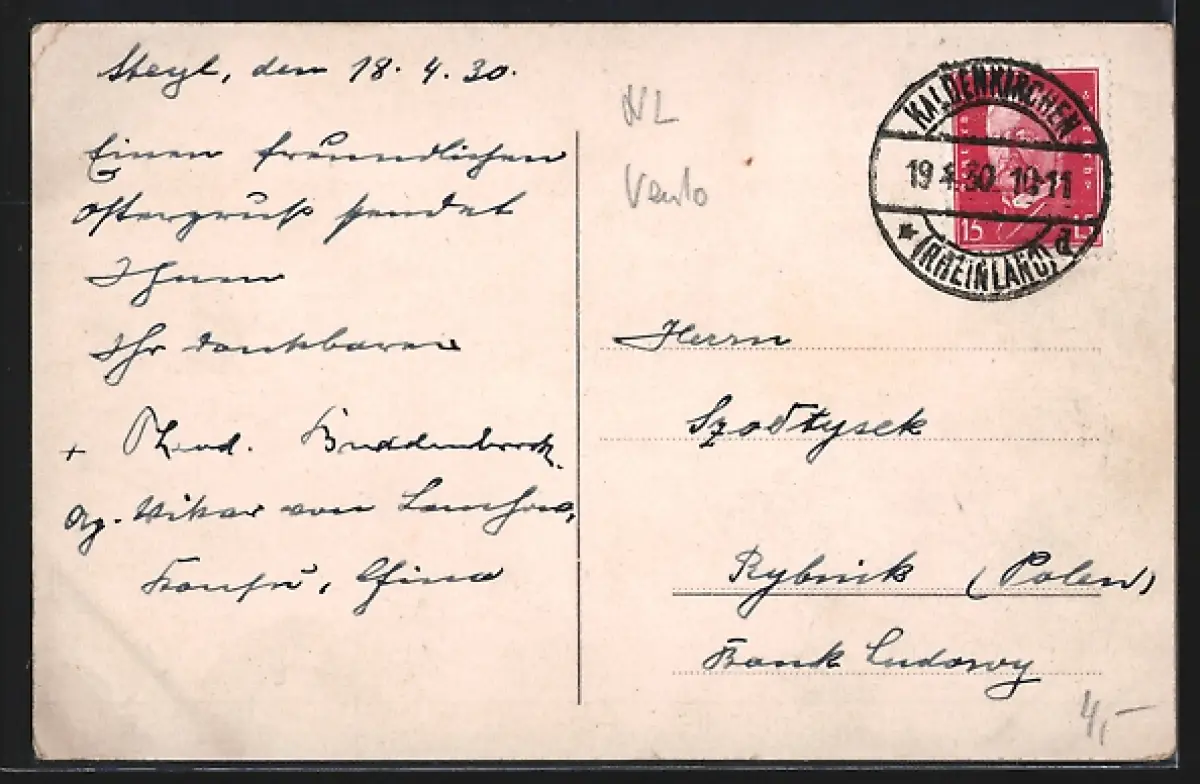 Steyl, den 18. 4. 30.
Einen freundlichen
Ostergruß sendet
Ihnen
Ihr dankbarer
+ Theod. Buddenbrock,
Ap. Vikar von Lanchow,
Kansu, China
NL
Venlo
KALDENKIRCHEN
19 4.30. 10-11
* (RHEINLAND) d
15
Herrn
Szołtysek
Rybnik (Polen)
Bank Ludowy
4,-